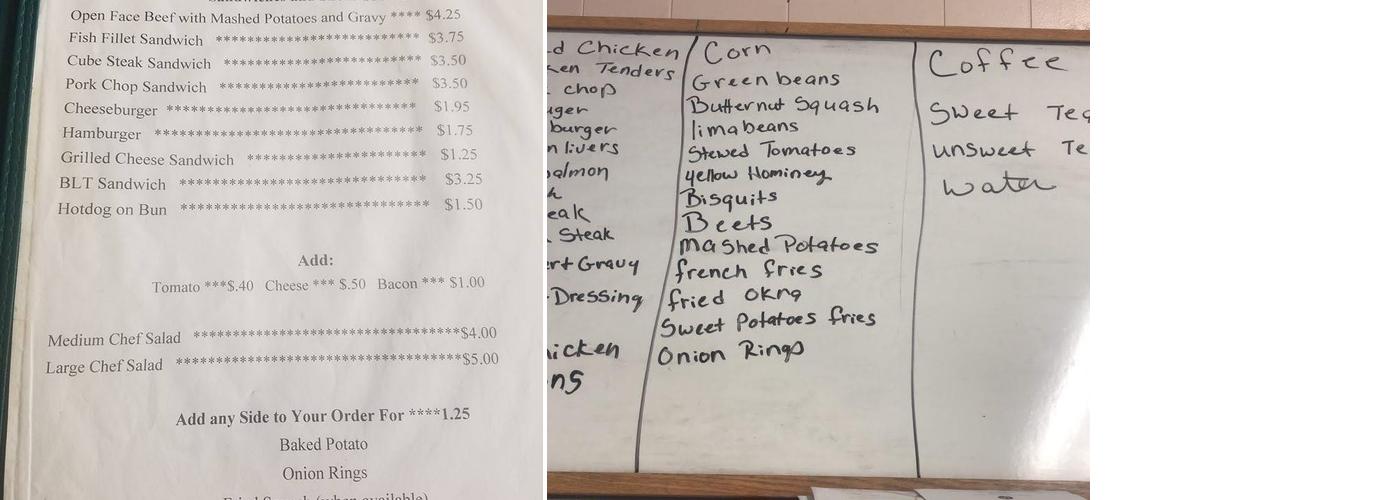 Open Face Beef with Mashed Potatoes and Gravy **** $4.25
Fish Fillet Sandwich ************************** $3.75
Cube Steak Sandwich ************************* $3.50
Pork Chop Sandwich ************************* $3.50
Cheeseburger ******************************** $1.95
Hamburger ********************************** $1.75
Grilled Cheese Sandwich *********************** $1.25
BLT Sandwich ******************************* $3.25
Hotdog on Bun ******************************* $1.50
Add:
Tomato ***$.40 Cheese *** $.50 Bacon *** $1.00
Medium Chef Salad **********************************$4.00
Large Chef Salad ************************************$5.00
Add any Side to Your Order For ****1.25
Baked Potato
Onion Rings
d Chicken
ken Tenders
chop
burger
n livers
almon
eak
Steak
Gravy
Dressing
icken
ns
Corn
Green beans
Butternut Squash
limabeans
Stewed Tomatoes
yellow Hominey
Bisquits
Beets
mashed Potatoes
french fries
fried okra
Sweet Potatoes fries
Onion Rings
Coffee
Sweet Tea
unsweet Te
water